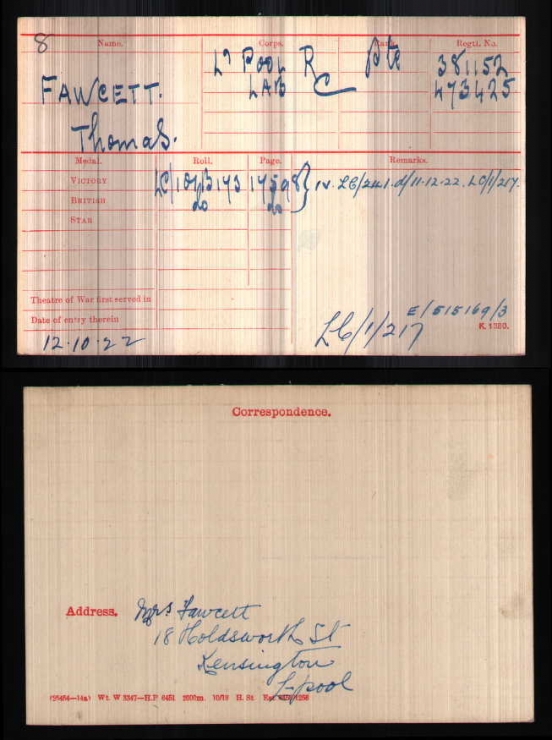 8
Name. Corps. Rank. Regtl. No.
L'POOL R Pte 381152
LAB C 473425
FAWCETT.
Thomas.
Medal. Roll. Page. Remarks.
VICTORY LC/102B143 14598 } IV. LC/2U1.d/11.12.22. LC/1/217.
BRITISH do do
STAR
Theatre of War first served in
Date of entry therein
12.10.22
E/515169/3
LC/1/217
K. 1380.
Correspondence.
Address. Mrs Fawcett
18 Holdsworth St
Kensington
L-pool
Wt. W 3347—H.P 2000m. 10/19 H. St.